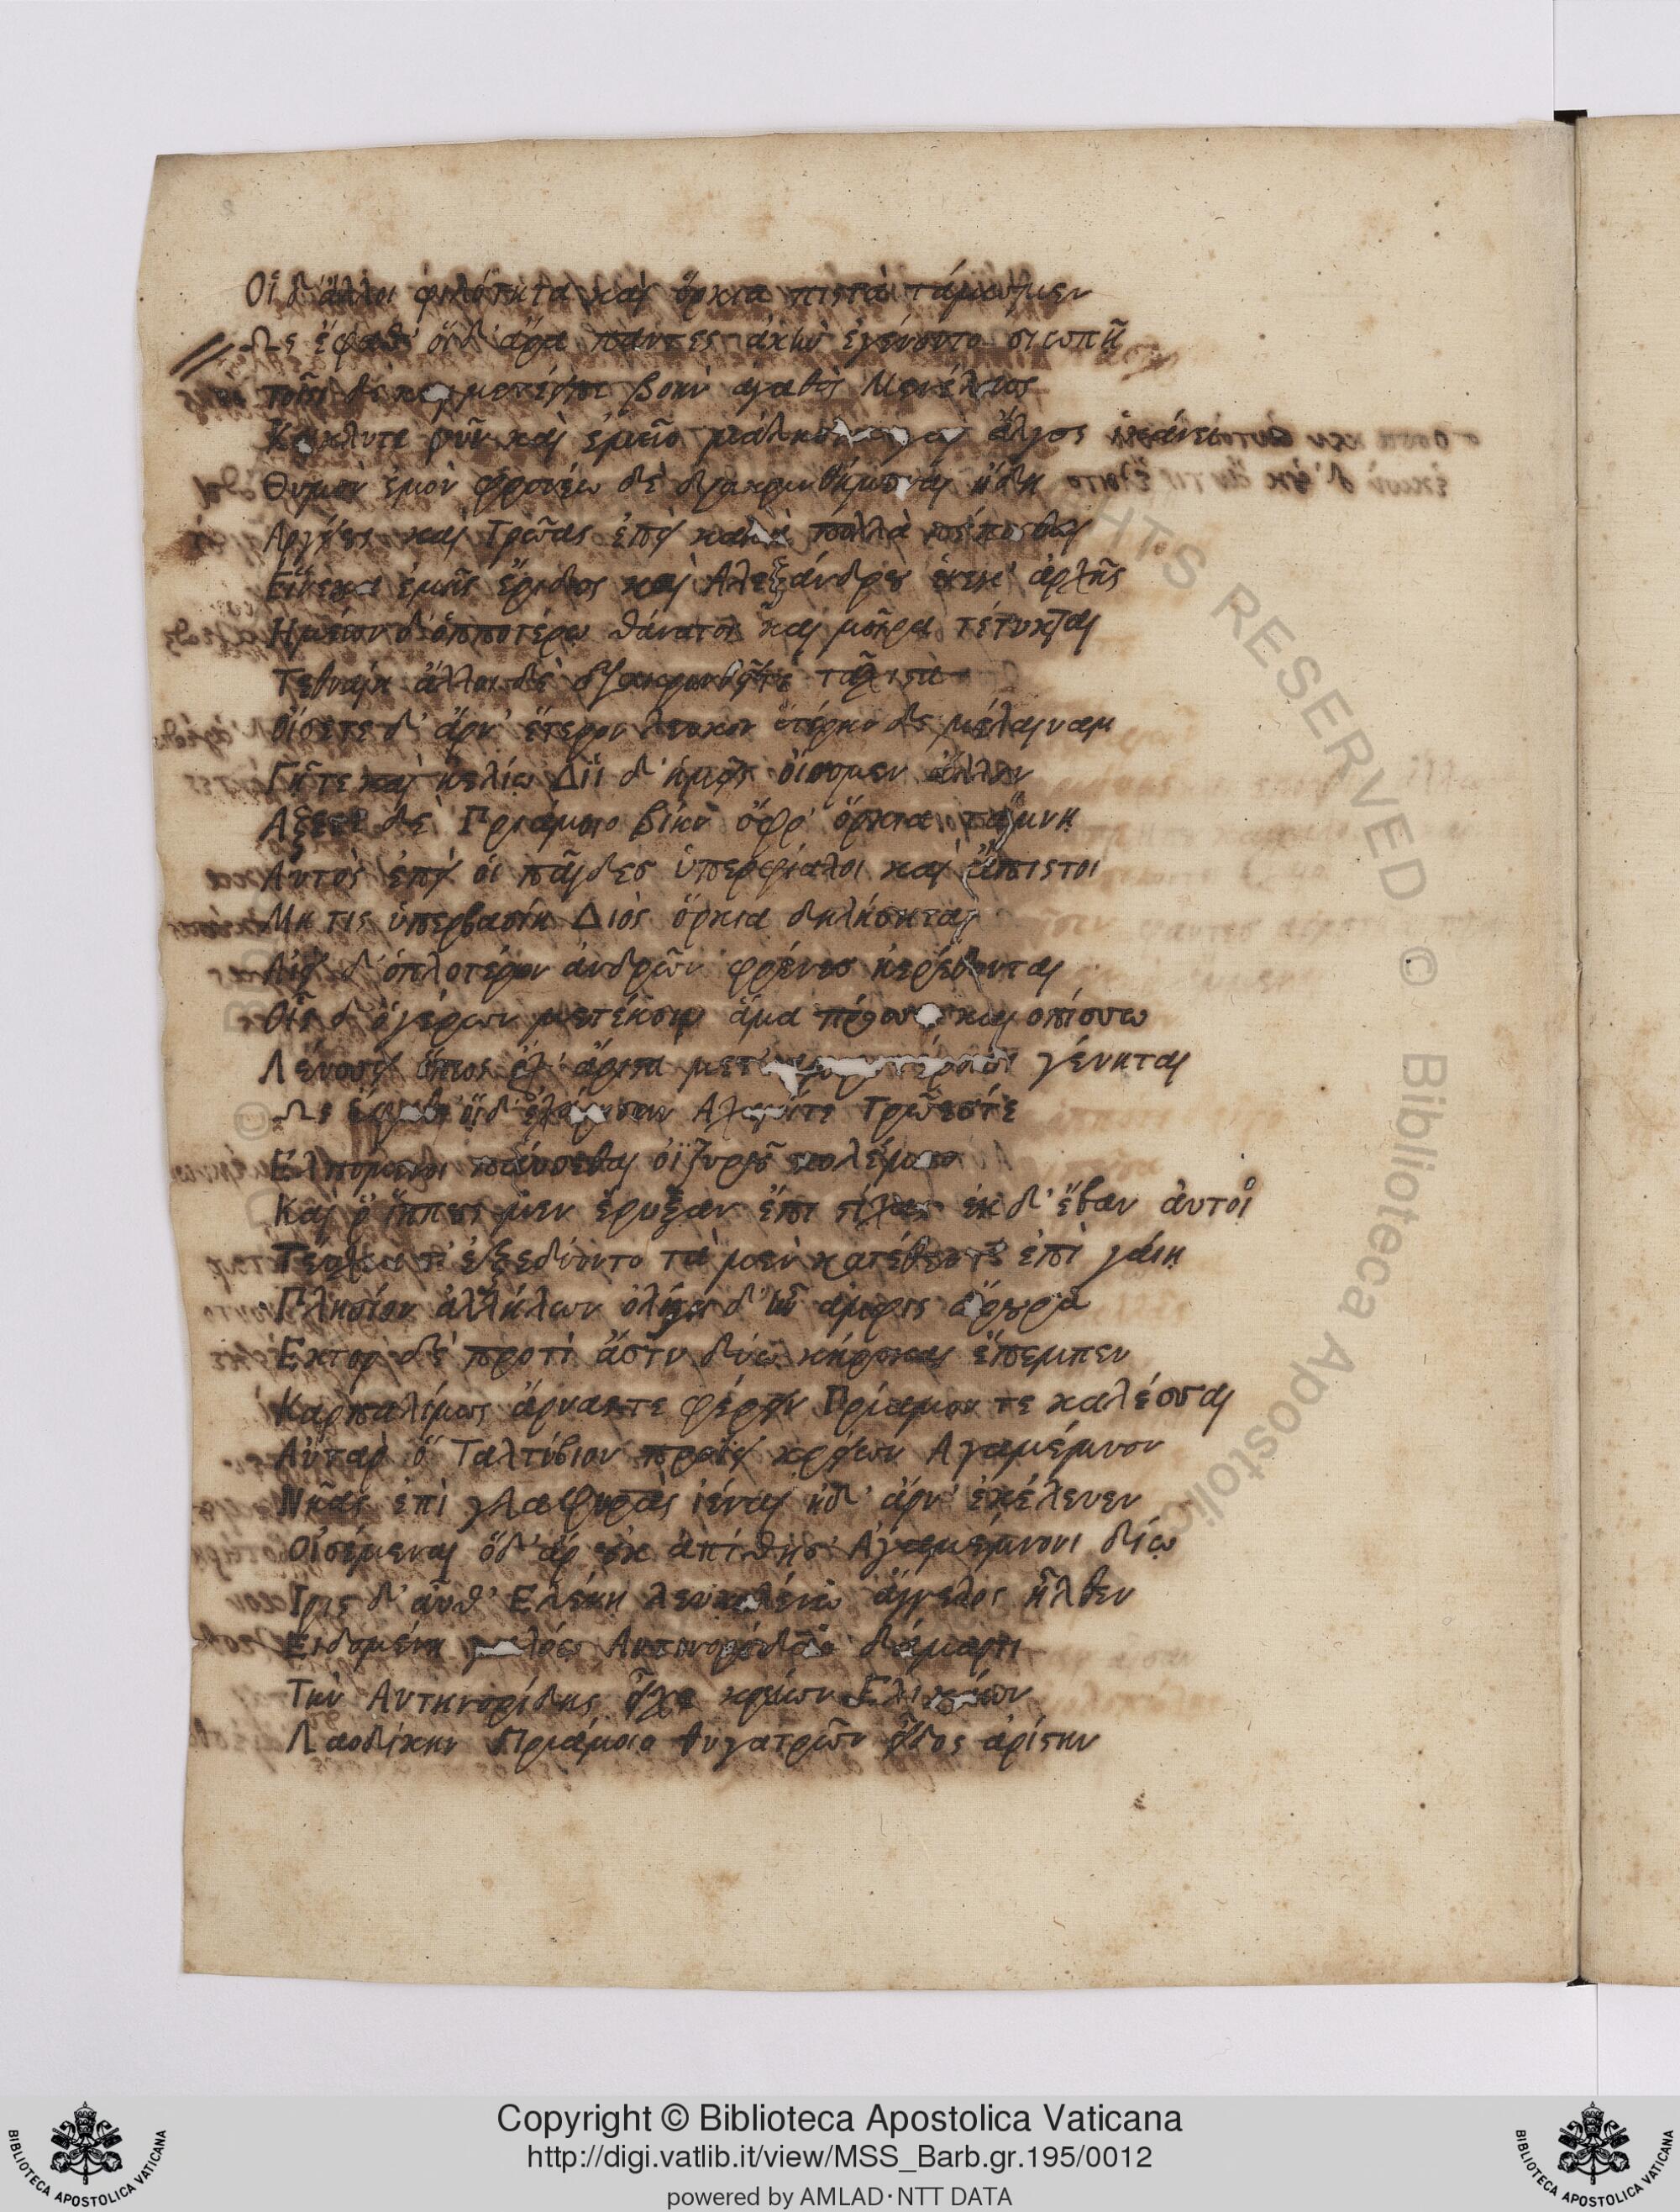 Οἱ δ' ἄλλοι φιλότητα καὶ ὅρκια πιστὰ τάμωμεν
Ως ἔφαθ' οἵδ' ἄρα πάντες ἀκὴν ἐγένοντο σιωπῆ
τοῖσι δὲ καὶ μετέειπε βοὴν ἀγαθὸς Μενέλαος
Κέκλυτε νῦν καὶ ἐμεῖο μάλιστα γὰρ ἄλγος ἱκάνει
Θυμὸν ἐμὸν φρονέω δὲ διακρινθήμεναι ἤδη
Αργείες καὶ Τρῶας ἐπεὶ κακὰ πολλὰ πέποσθε
Εἵνεκα ἐμῆς ἔριδος καὶ Αλεξάνδρου ἕνεκ' ἀρχῆς
Ημέων δ' ὁπποτέρω θάνατος καὶ μοῖρα τέτυκται
Τεθναίη ἄλλοι δὲ διακρινθεῖτε τάχιστα
Οἴσετε δ' ἄρν' ἕτερον λευκὸν ἑτέρην δὲ μέλαιναν
Γῆ τε καὶ ἠελίω Διὶ δ' ἡμεῖς οἴσομεν ἄλλον
Αξετε δὲ Πριάμοιο βίην ὄφρ' ὅρκια τάμνη
Αὐτὸς ἐπεὶ οἱ παῖδες ὑπερφίαλοι καὶ ἄπιστοι
Μή τις ὑπερβασίη Διὸς ὅρκια δηλήσηται
Αἰεὶ δ' ὁπλοτέρων ἀνδρῶν φρένες ἠερέθονται
Οἷς δ' ὁ γέρων μετέησιν ἅμα πρόσσω καὶ ὀπίσσω
Λεύσσει ὅπως ὄχ' ἄριστα μετ' ἀμφοτέροισι γένηται
Ως ἔφαθ' οἵδ' ἐχάρησαν Αχαιοί τε Τρῶές τε
Ελπόμενοι παύσεσθαι ὀϊζυροῦ πολέμοιο
Καί ῥ' ἵππους μὲν ἔρυξαν ἐπὶ στίχας ἐκ δ' ἔβαν αὐτοὶ
Τεύχεα τ' ἐξεδύοντο τὰ μὲν κατέθεντ' ἐπὶ γαίη
Πλησίον ἀλλήλων ὀλίγη δ' ἦν ἀμφὶς ἄρουρα
Εκτωρ δὲ προτὶ ἄστυ δύω κήρυκας ἔπεμπεν
Καρπαλίμως ἄρνας τε φέρειν Πρίαμόν τε καλέσσαι
Αὐτὰρ ὃ Ταλτύβιον προΐει κρείων Αγαμέμνων
Νῆας ἐπὶ γλαφυρὰς ἰέναι ἠδ' ἄρν' ἐκέλευεν
Οἰσέμεναι ὅδ' ἄρ' οὐκ ἀπίθησ' Αγαμέμνονι δίω
Ιρις δ' αὖθ' Ελένη λευκωλένω ἄγγελος ἦλθεν
Εἰδομένη γαλόω Αντηνορίδαο δάμαρτι
Τὴν Αντηνορίδης εἶχε κρείων Ελικάων
Λαοδίκην Πριάμοιο θυγατρῶν εἶδος ἀρίστην
© Biblioteca Apostolica
RIGHTS RESERVED
Copyright © Biblioteca Apostolica Vaticana
http://digi.vatlib.it/view/MSS_Barb.gr.195/0012
powered by AMLAD·NTT DATA
BIBLIOTECA APOSTOLICA VATICANA
BIBLIOTECA APOSTOLICA VATICANA